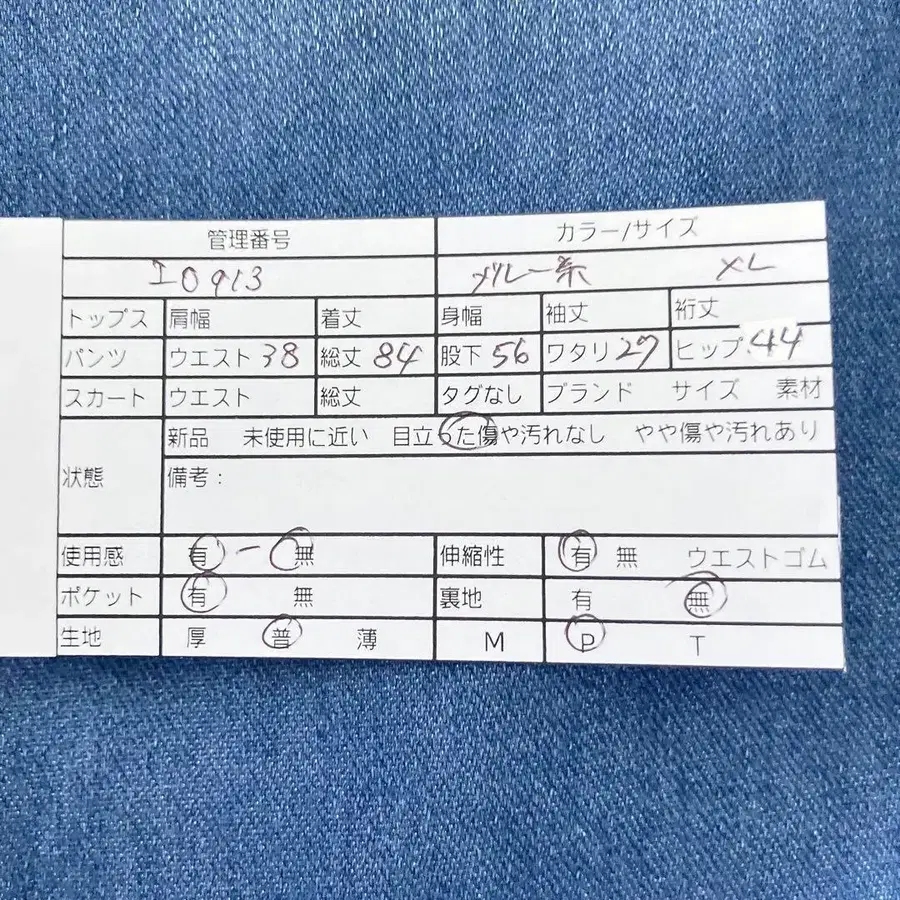 管理番号 カラー/サイズ
I0913 ブルー系 XL
トップス 肩幅 着丈 身幅 袖丈 裄丈
パンツ ウエスト 38 総丈 84 股下 56 ワタリ 27 ヒップ 44
スカート ウエスト 総丈 タグなし ブランド サイズ 素材
新品 未使用に近い 目立った傷や汚れなし やや傷や汚れあり
状態 備考:
使用感 有 ー 無 伸縮性 有 無 ウエストゴム
ポケット 有 無 裏地 有 無
生地 厚 普 薄 M P T